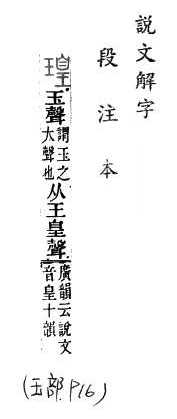 說文解字
段注本
瑝 玉聲 謂玉之大聲也 从王皇聲 廣韻云說文音皇十韻
(玉部. P16)